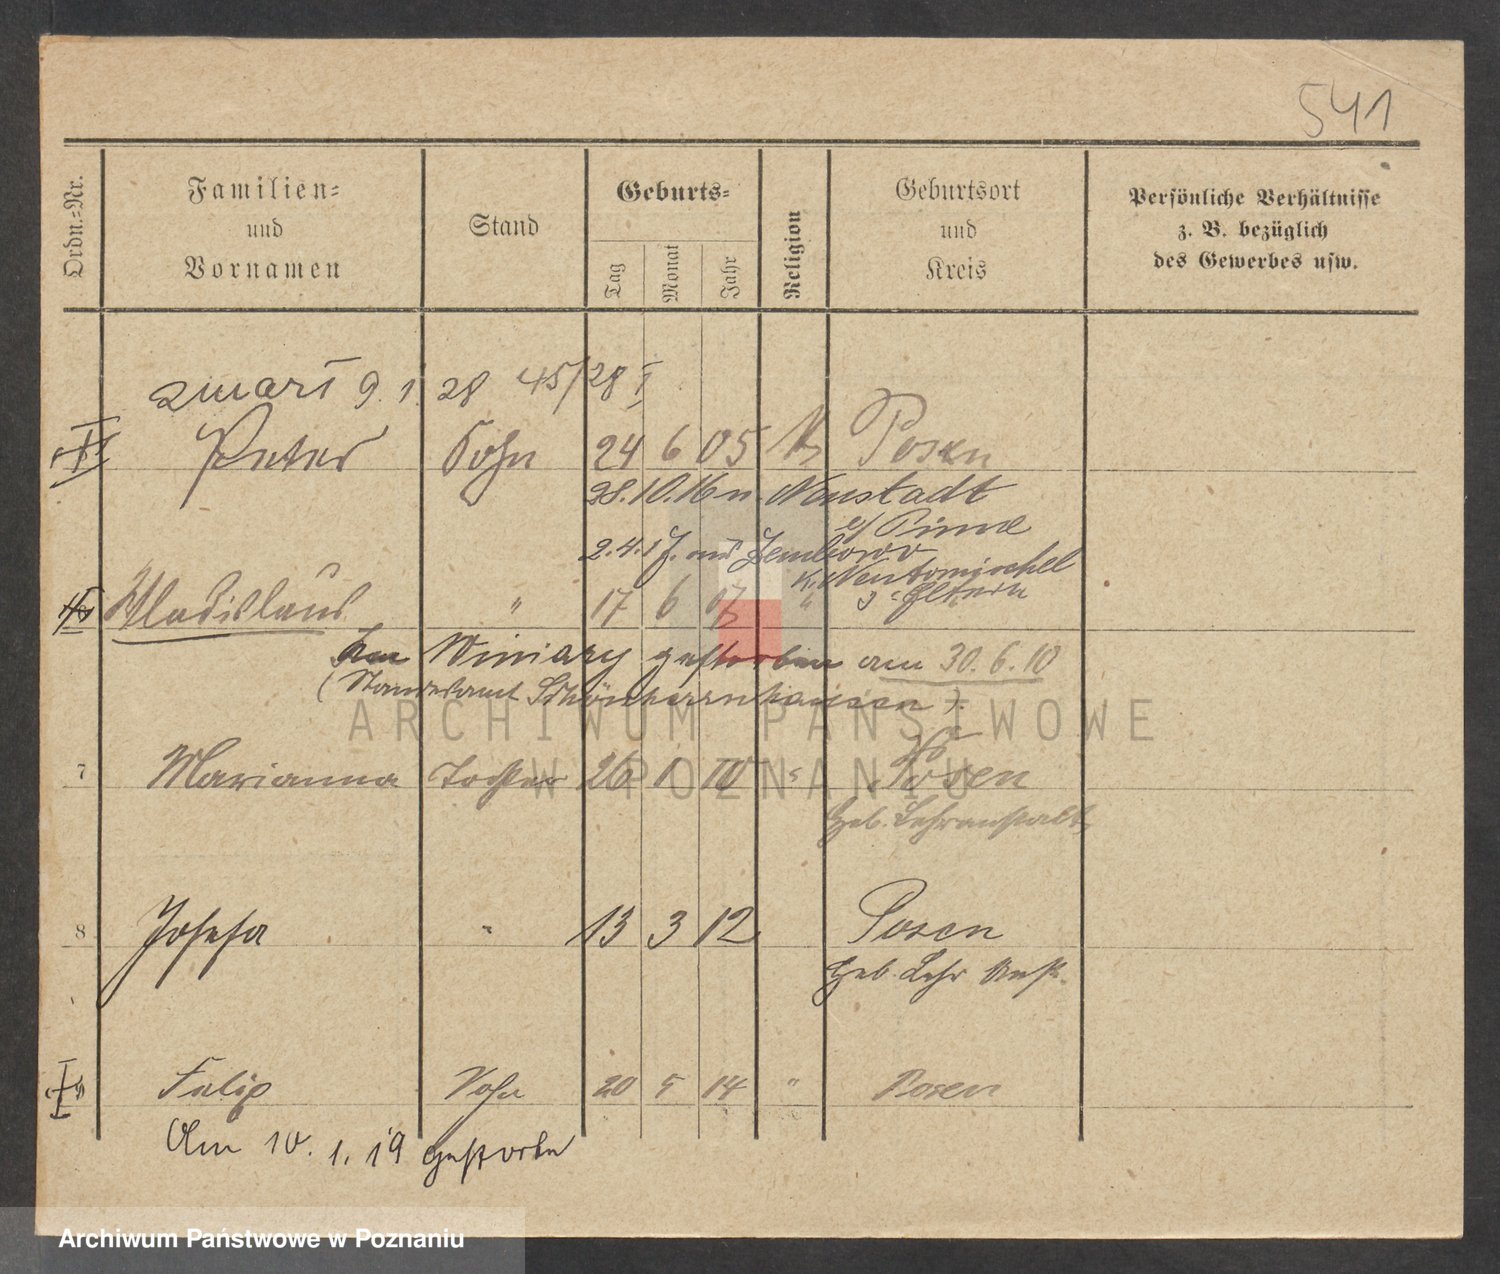 541
Ordn.=Nr.
Familien=
und
Vornamen
Stand
Geburts=
Tag
Monat
Jahr
Religion
Geburtsort
und
Kreis
Persönliche Verhältnisse
z. B. bezüglich
des Gewerbes usw.
zmarł 9. 1. 28 45/28 I
Peter Sohn 24 6 05 Posen
28.10.16 n. Neustadt
b/ Pinne
2.4.17. aus Zembowo
K. Neutomischel
z. Eltern
Wladislaus " 17 6 07 "
In Winiary gestorben am 30.6.10
(Standesamt Schönherrnhausen).
7 Marianna Tochter 26 1 10 " Posen
Heb. Lehranstalt
8 Josefa " 13 3 12 Posen
Heb. Lehr Anst.
Filip Sohn 20 5 14 " Posen
Am 10. 1. 19 gestorben
ARCHIWUM PAŃSTWOWE
W POZNANIU
Archiwum Państwowe w Poznaniu